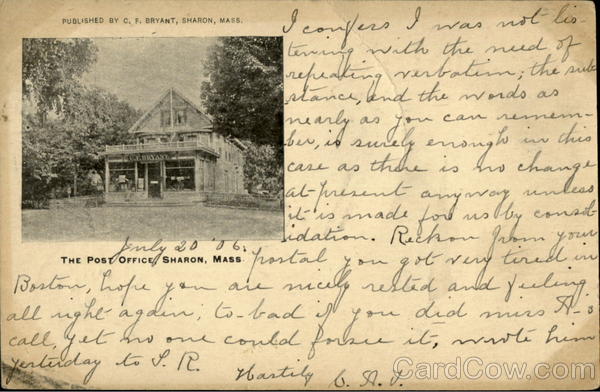 PUBLISHED BY C. F. BRYANT, SHARON, MASS.
I confess I was not lis-
tening with the need of
repeating verbatim; the sub-
stance, and the words as
nearly as you can remem-
ber, is surely enough in this
case as there is no change
at present anyway unless
it is made for us by consol-
idation. Reckon from your
C.F. BRYANT
July 20 '06.
THE POST OFFICE, SHARON, MASS.
postal you got very tired in
Boston, hope you are nicely rested and feeling
all right again, to-bad if you did miss A-s
call, yet no one could forsee it, wrote him
yesterday to S. R.
Hastily C. A. S.
CardCow.com